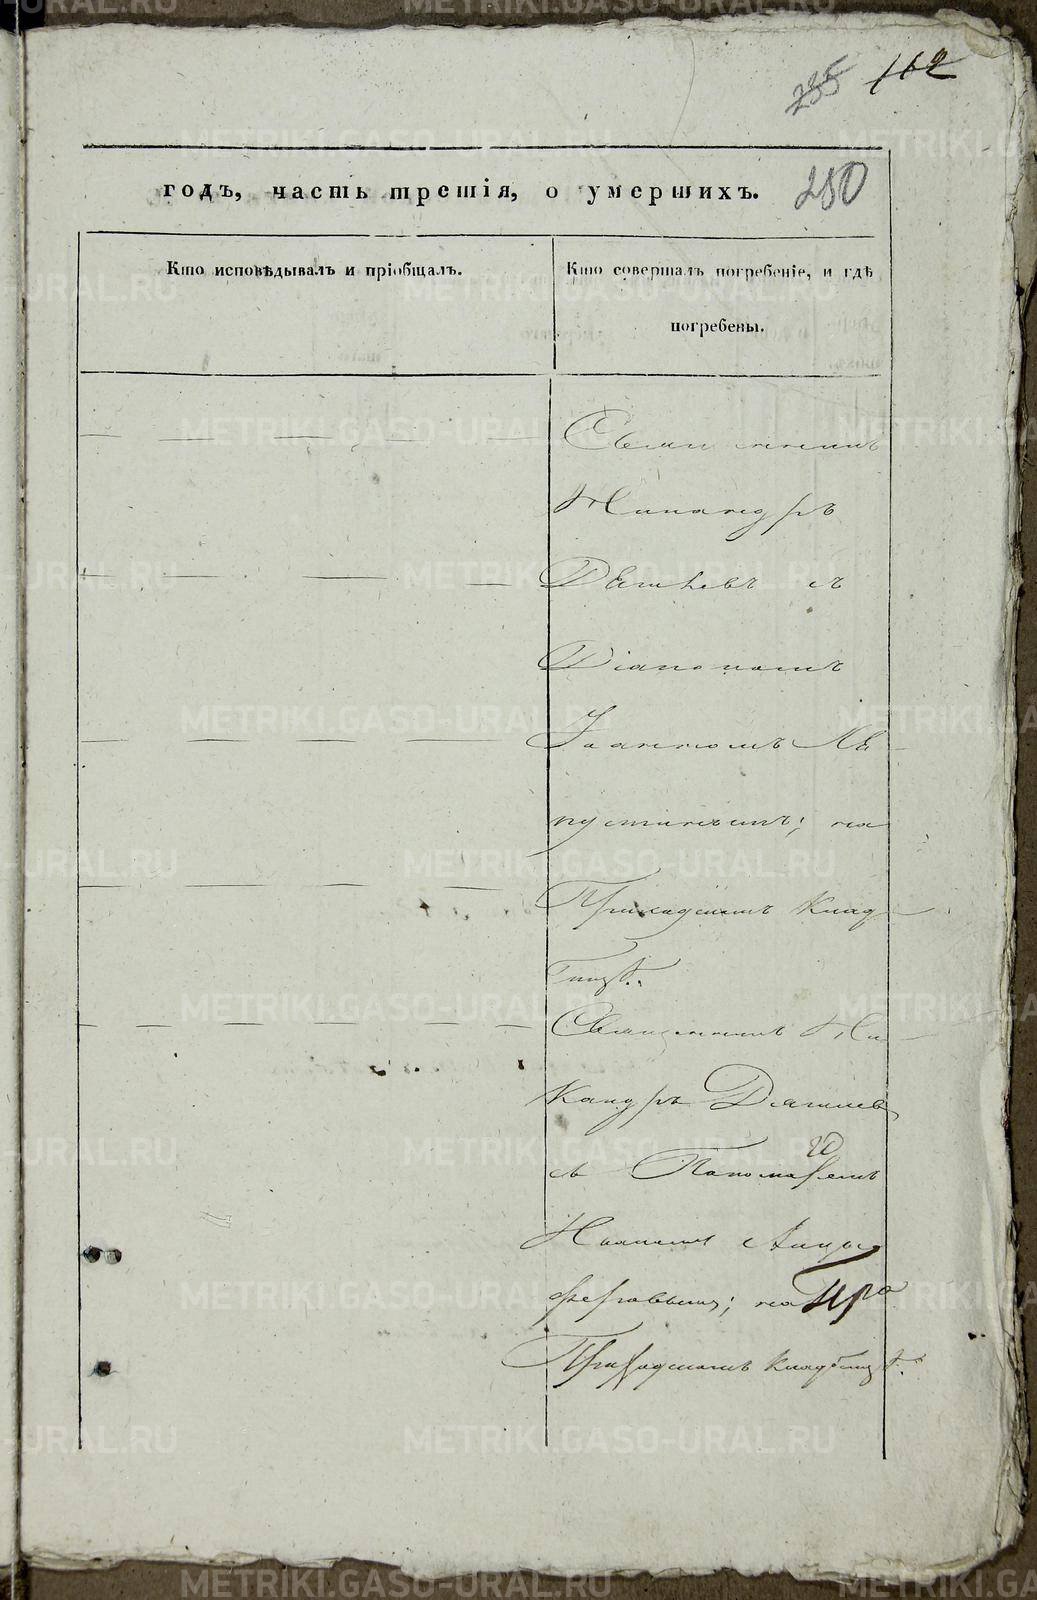 235 112
годъ, часть третія, о умершихъ. 280
Кто исповѣдывалъ и пріобщалъ.
Кто совершалъ погребеніе, и гдѣ
погребены.
Священникъ
Никандръ
съ
Діакономъ
Іоанномъ
на
Приходскомъ Клад
бищѣ.
Священникъ Ни
кандръ
съ Пономаремъ
Иваномъ
на
Приходскомъ кладбищѣ.
METRIKI.GASO-URAL.RU